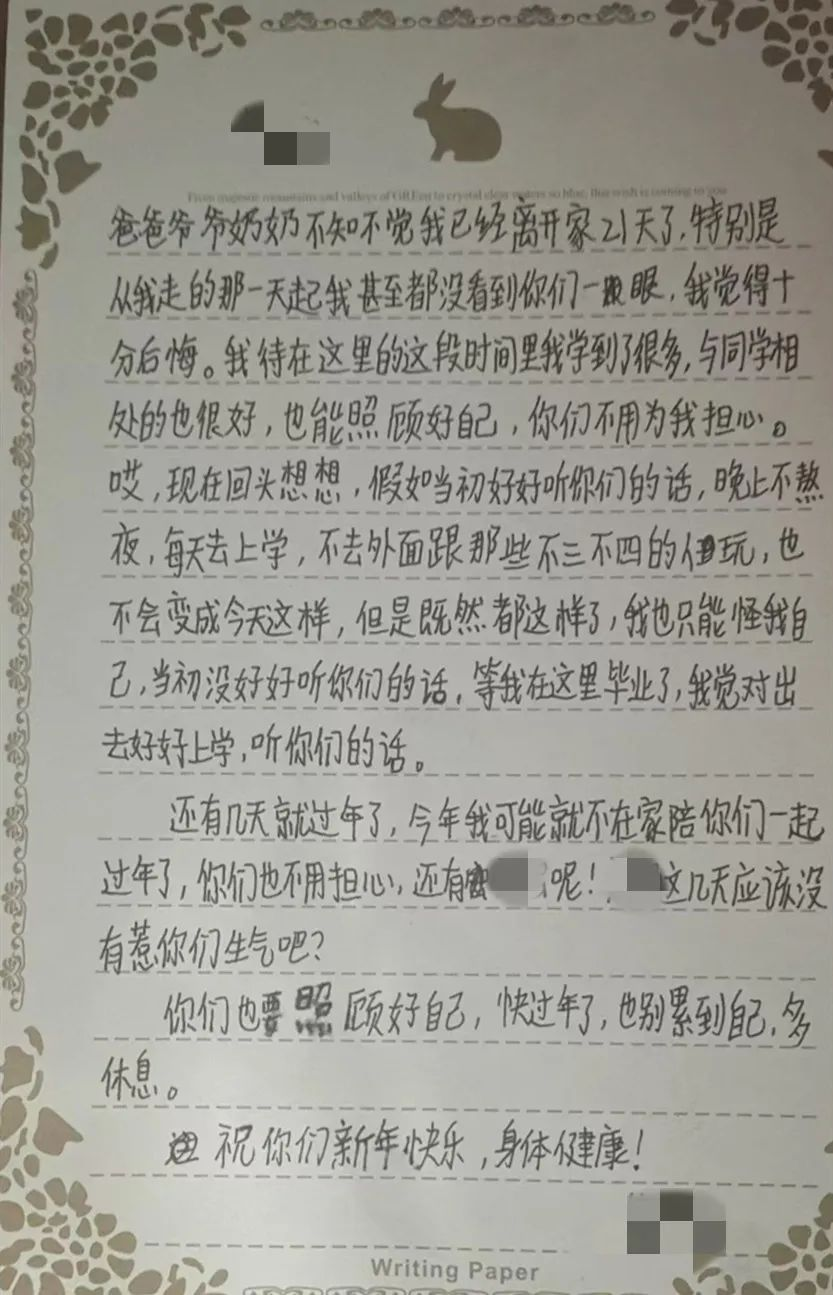 From majestic mountains and valleys of GREen to crystal clear waters so blue, this wish is coming to you
爸爸爷爷奶奶不知不觉我已经离开家21天了,特别是
从我走的那一天起我甚至都没看到你们一眼,我觉得十
分后悔。我待在这里的这段时间里我学到了很多,与同学相
处的也很好,也能照顾好自己,你们不用为我担心。
哎,现在回头想想,假如当初好好听你们的话,晚上不熬
夜,每天去上学,不去外面跟那些不三不四的人玩,也
不会变成今天这样,但是既然都这样了,我也只能怪我自
己,当初没好好听你们的话,等我在这里毕业了,我觉对出
去好好上学,听你们的话。
还有几天就过年了,今年我可能就不在家陪你们一起
过年了,你们也不用担心,还有呢!这几天应该没
有惹你们生气吧?
你们也要照顾好自己,快过年了,也别累到自己,多
休息。
祝你们新年快乐,身体健康!
Writing Paper